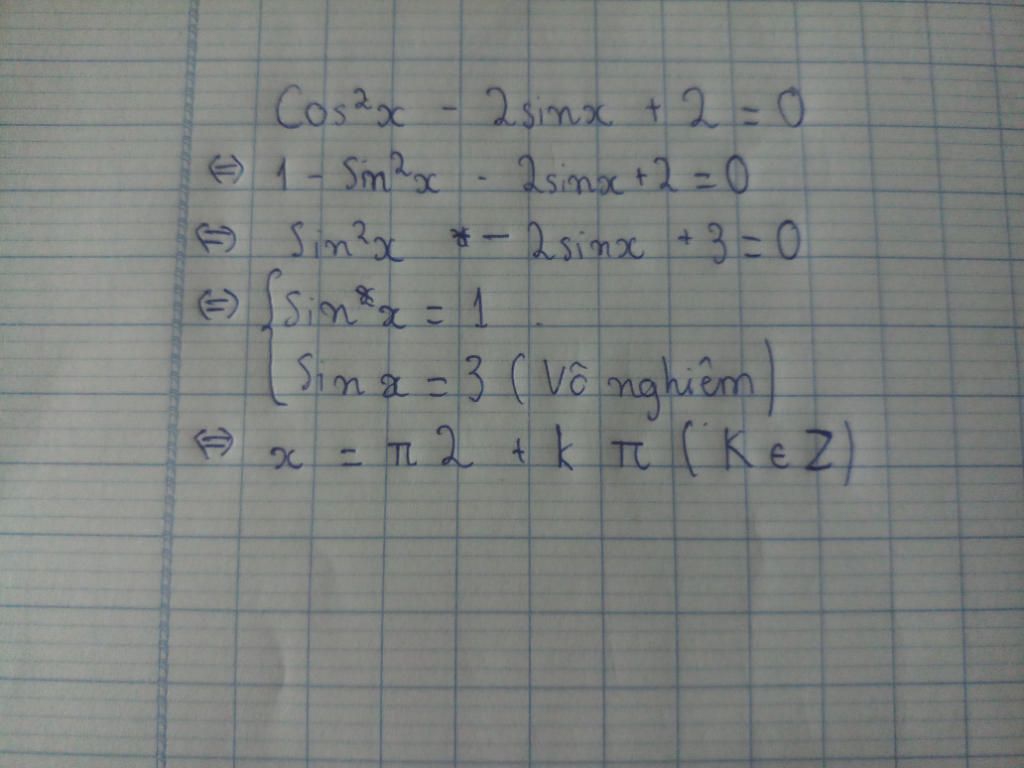 Cos²x - 2sinx + 2 = 0
⇔ 1 - Sin²x - 2sinx + 2 = 0
⇔ Sin²x - 2sinx + 3 = 0
⇔ { Sin x = 1
Sin x = 3 (Vô nghiêm)
⇔ x = π 2 + k π (K ∈ Z)